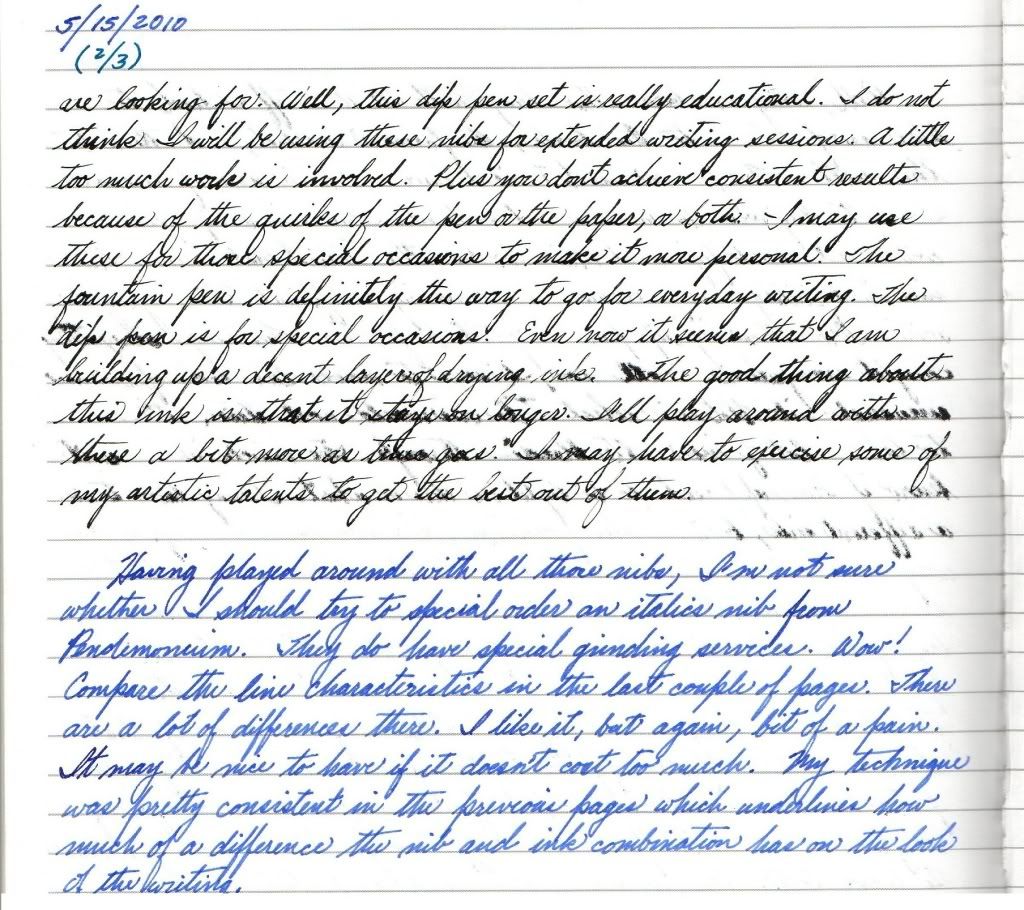 5/15/2010
(2/3)
are looking for. Well, this dip pen set is really educational. I do not
think I will be using these nibs for extended writing sessions. A little
too much work is involved. Plus you don't achieve consistent results
because of the quirks of the pen or the paper, or both. - I may use
these for those special occasions to make it more personal. The
fountain pen is definitely the way to go for everyday writing. The
dip pen is for special occasions. Even now it seems that I am
building up a decent layer of drying ink. The good thing about
this ink is that it stays on longer. I'll play around with
these a bit more as time goes. I may have to exercise some of
my artistic talents to get the best out of them.
Having played around with all those nibs, I'm not sure
whether I should try to special order an italics nib from
Pendemonium. They do have special grinding services. Wow!
Compare the line characteristics in the last couple of pages. There
are a lot of differences there. I like it, but again, bit of a pain.
It may be nice to have if it doesn't cost too much. My technique
was pretty consistent in the previous pages which underlines how
much of a difference the nib and ink combination has on the look
of the writing.